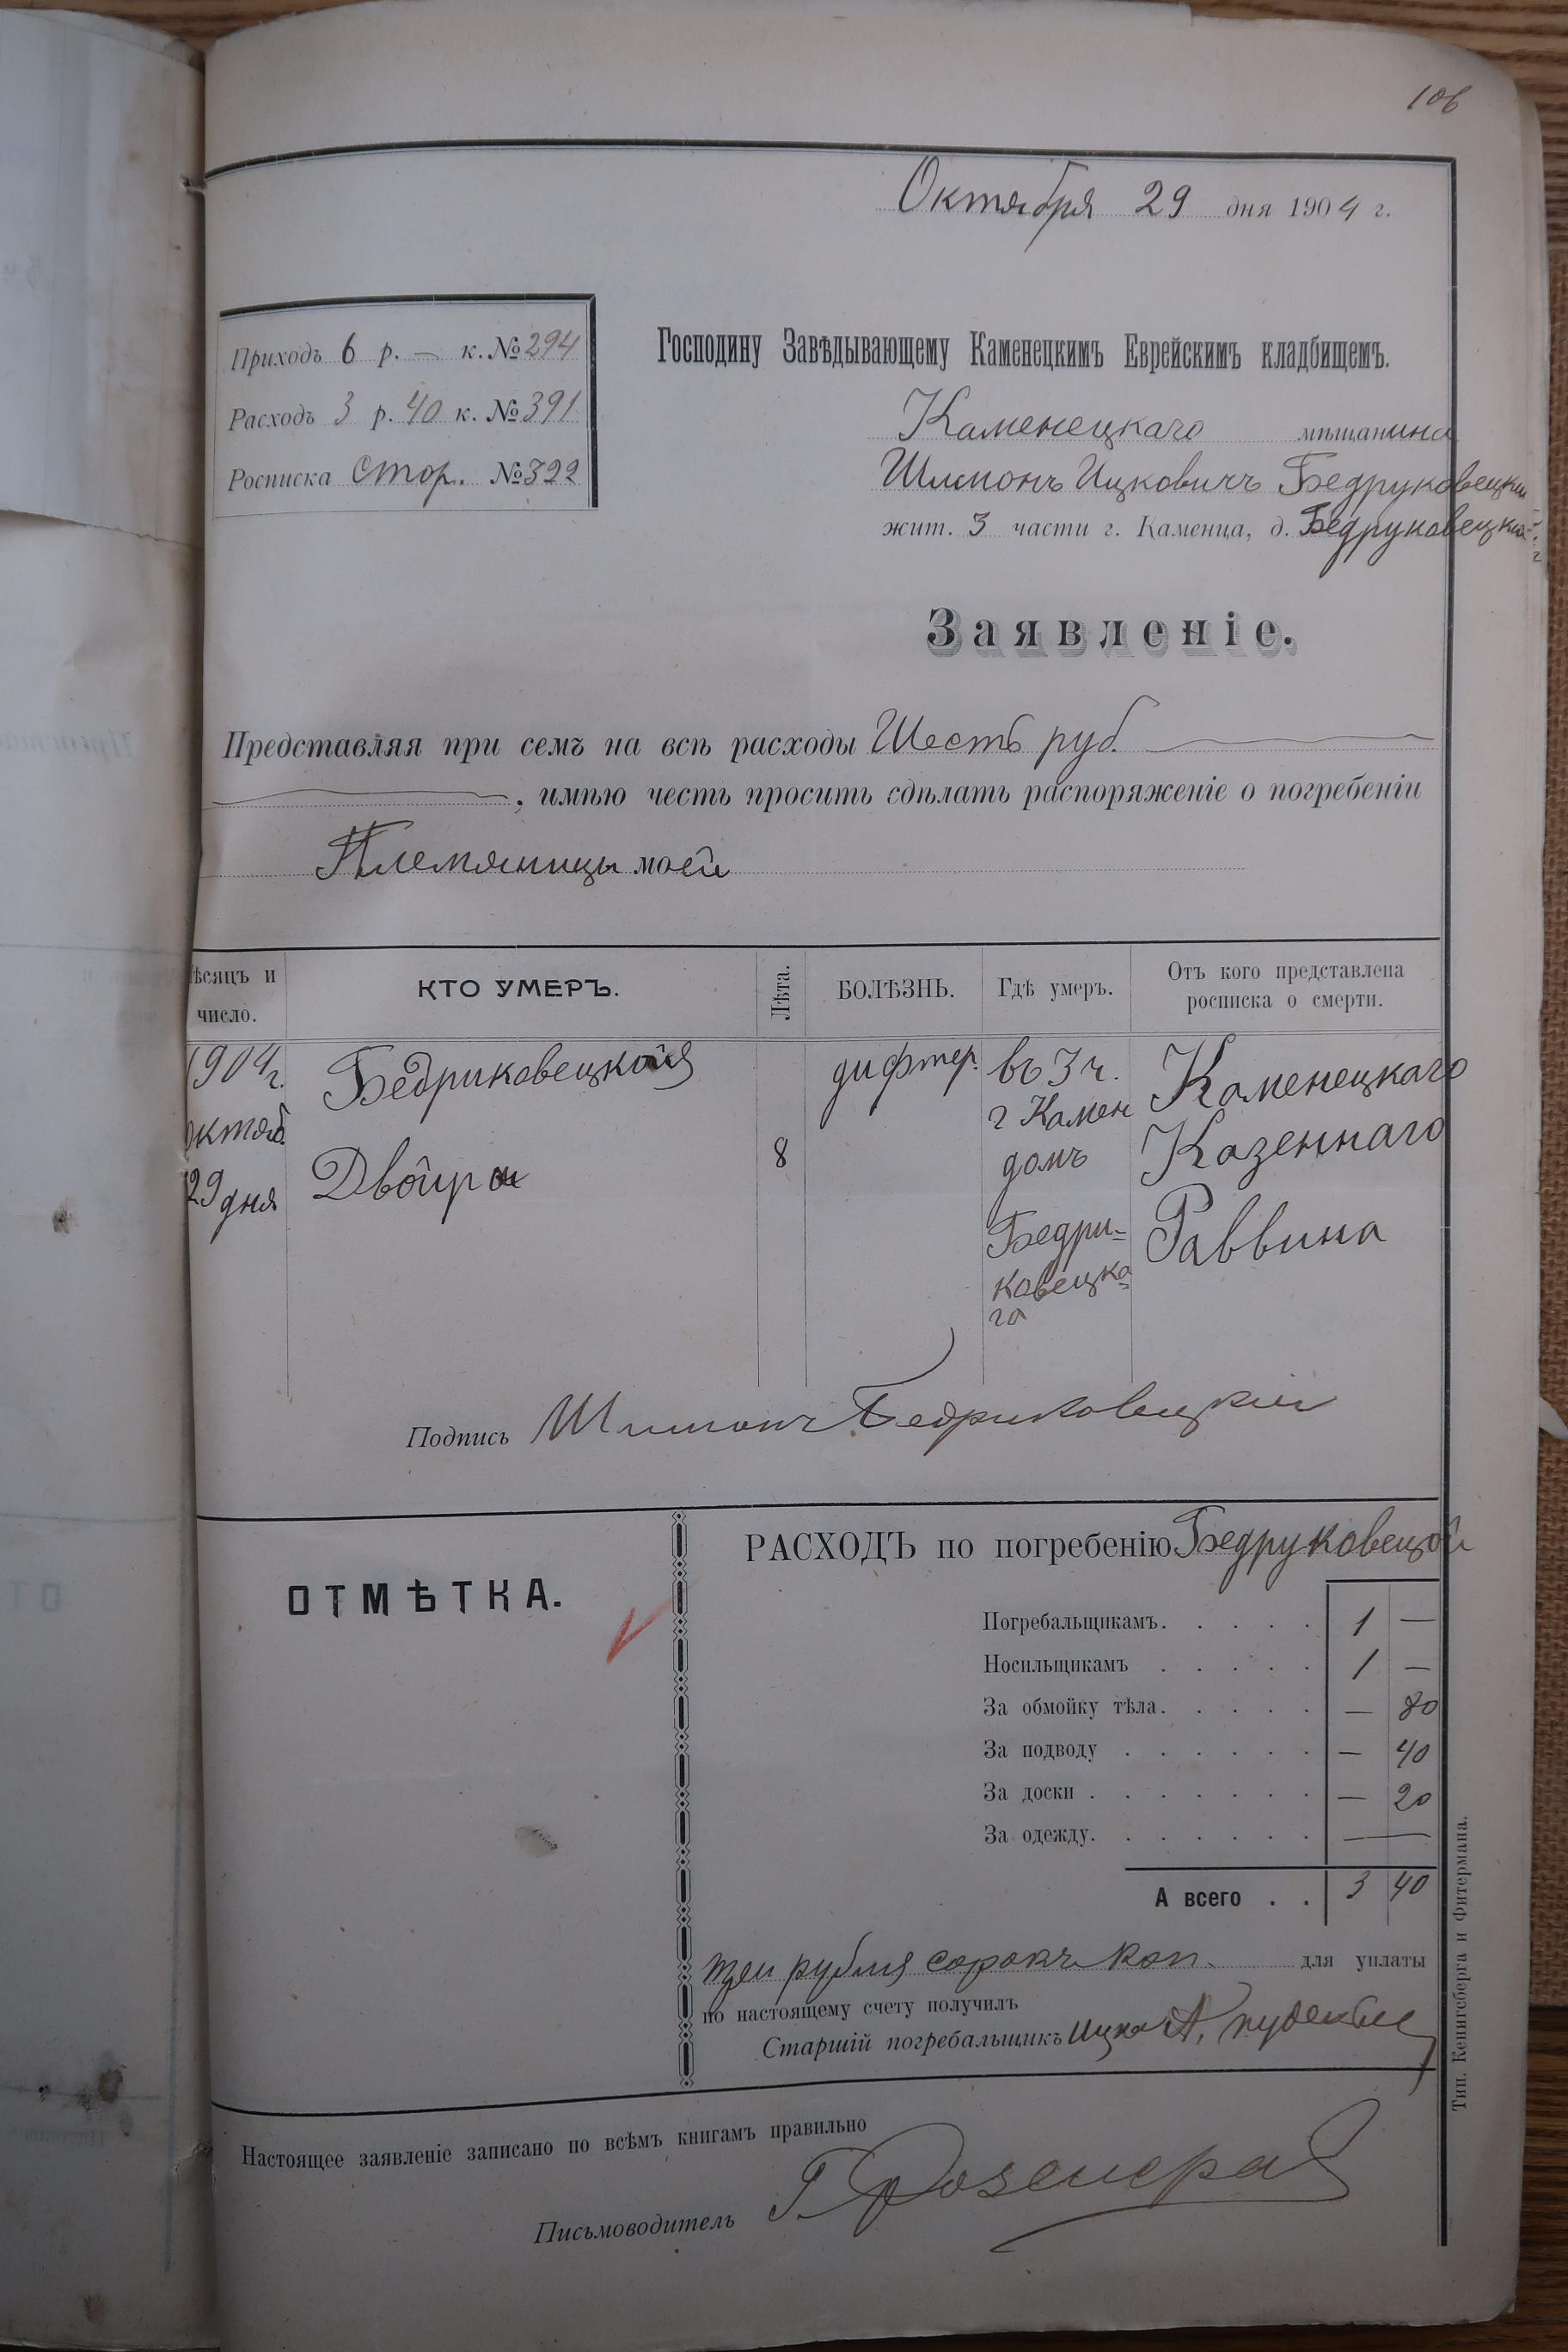 106
Октября 29 дня 1904 г.
Приходъ 6 р. — к. № 294
Расходъ 3 р. 40 к. № 391
Росписка Стор. № 322
Господину Завѣдывающему Каменецкимъ Еврейскимъ кладбищемъ.
Каменецкаго мѣщанина
Шимонъ Ицковичъ Бедруковецкій
жит. 3 части г. Каменца, д. Бедруковецкаго
Заявленіе.
Представляя при семъ на всѣ расходы Шесть руб.
, имѣю честь просить сдѣлать распоряженіе о погребеніи
Племяницы моей
ѣсяцъ и число.
КТО УМЕРЪ.
Лѣта.
БОЛѢЗНЬ.
Гдѣ умеръ.
Отъ кого представлена росписка о смерти.
1904 г.
Октяб.
29 дня
Бедриковецкая
Двойра
8
дифтер.
въ 3 ч.
г Камен
домъ
Бедри-
ковецка-
го
Каменецкаго
Казеннаго
Раввина
Подпись Шимонъ Бедриковецкій
ОТМѢТКА.
РАСХОДЪ по погребенію Бедруковецой
Погребальщикамъ. . . . . 1 —
Носильщикамъ . . . . . 1 —
За обмойку тѣла. . . . . — 80
За подводу . . . . . . — 40
За доски . . . . . . . — 20
За одежду. . . . . . . —
А всего . . 3 40
три рубля сорокъ коп. для уплаты
по настоящему счету получилъ
Старшій погребальщикъ Ицко А.
Настоящее заявленіе записано по всѣмъ книгамъ правильно
Письмоводитель
Тип. Кенигсберга и Фитермана.